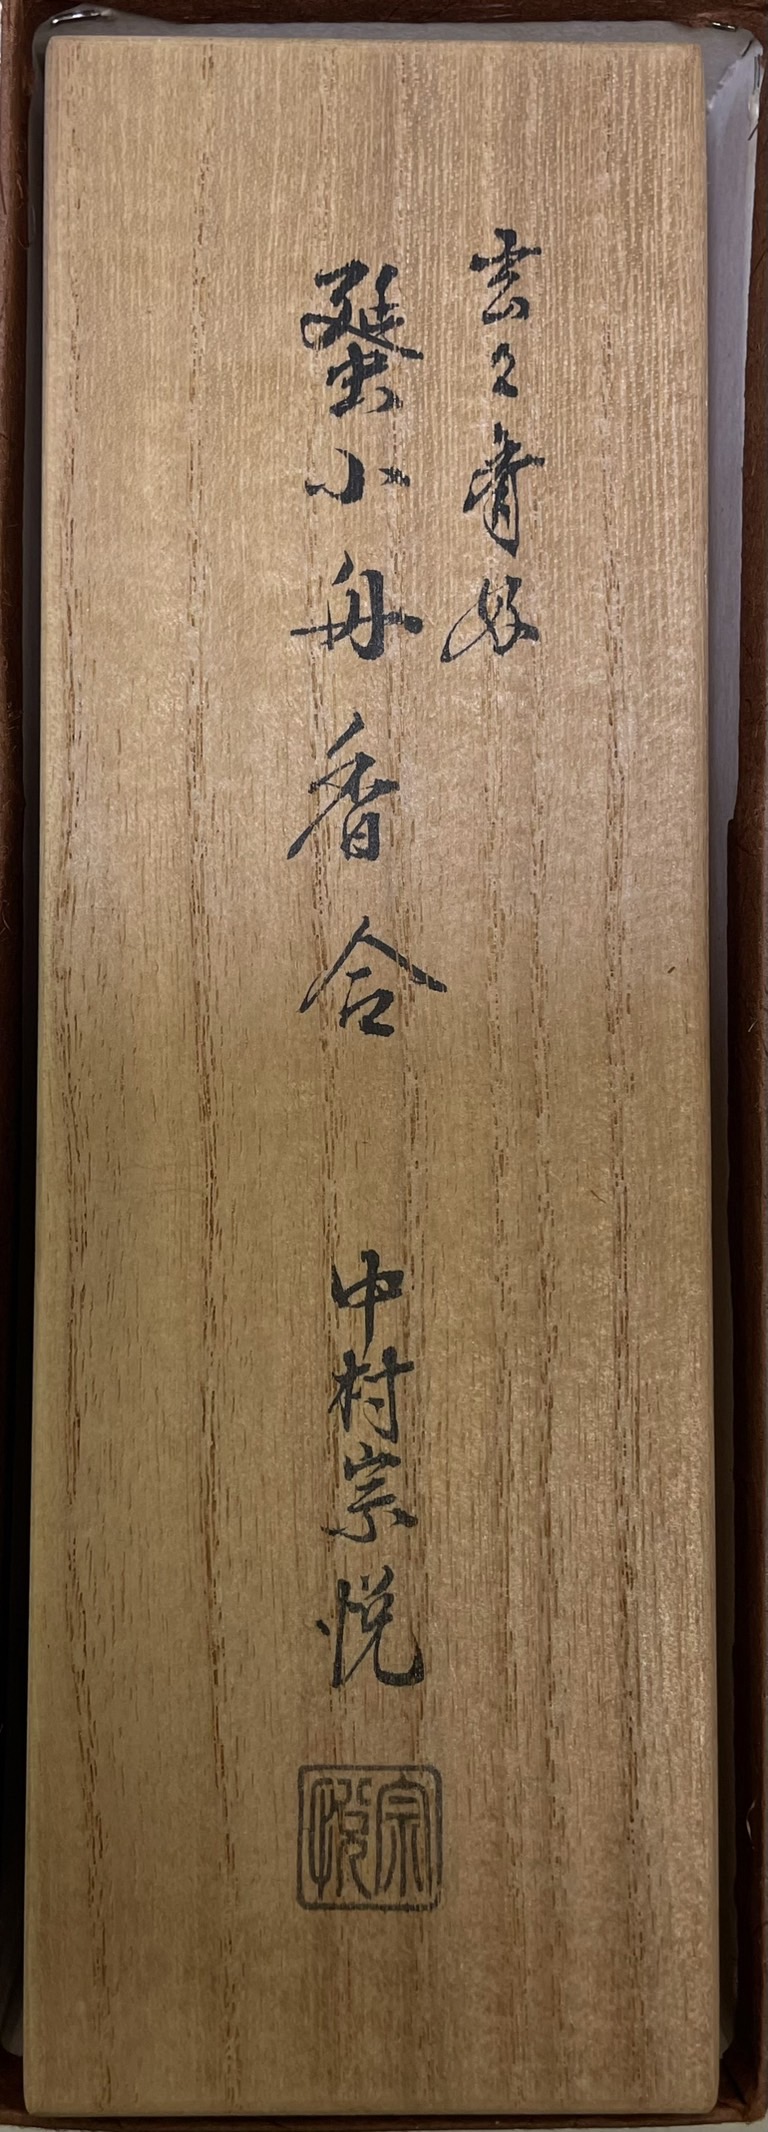 玄々斎好
蜑小舟香合
中村宗悦
宗悦